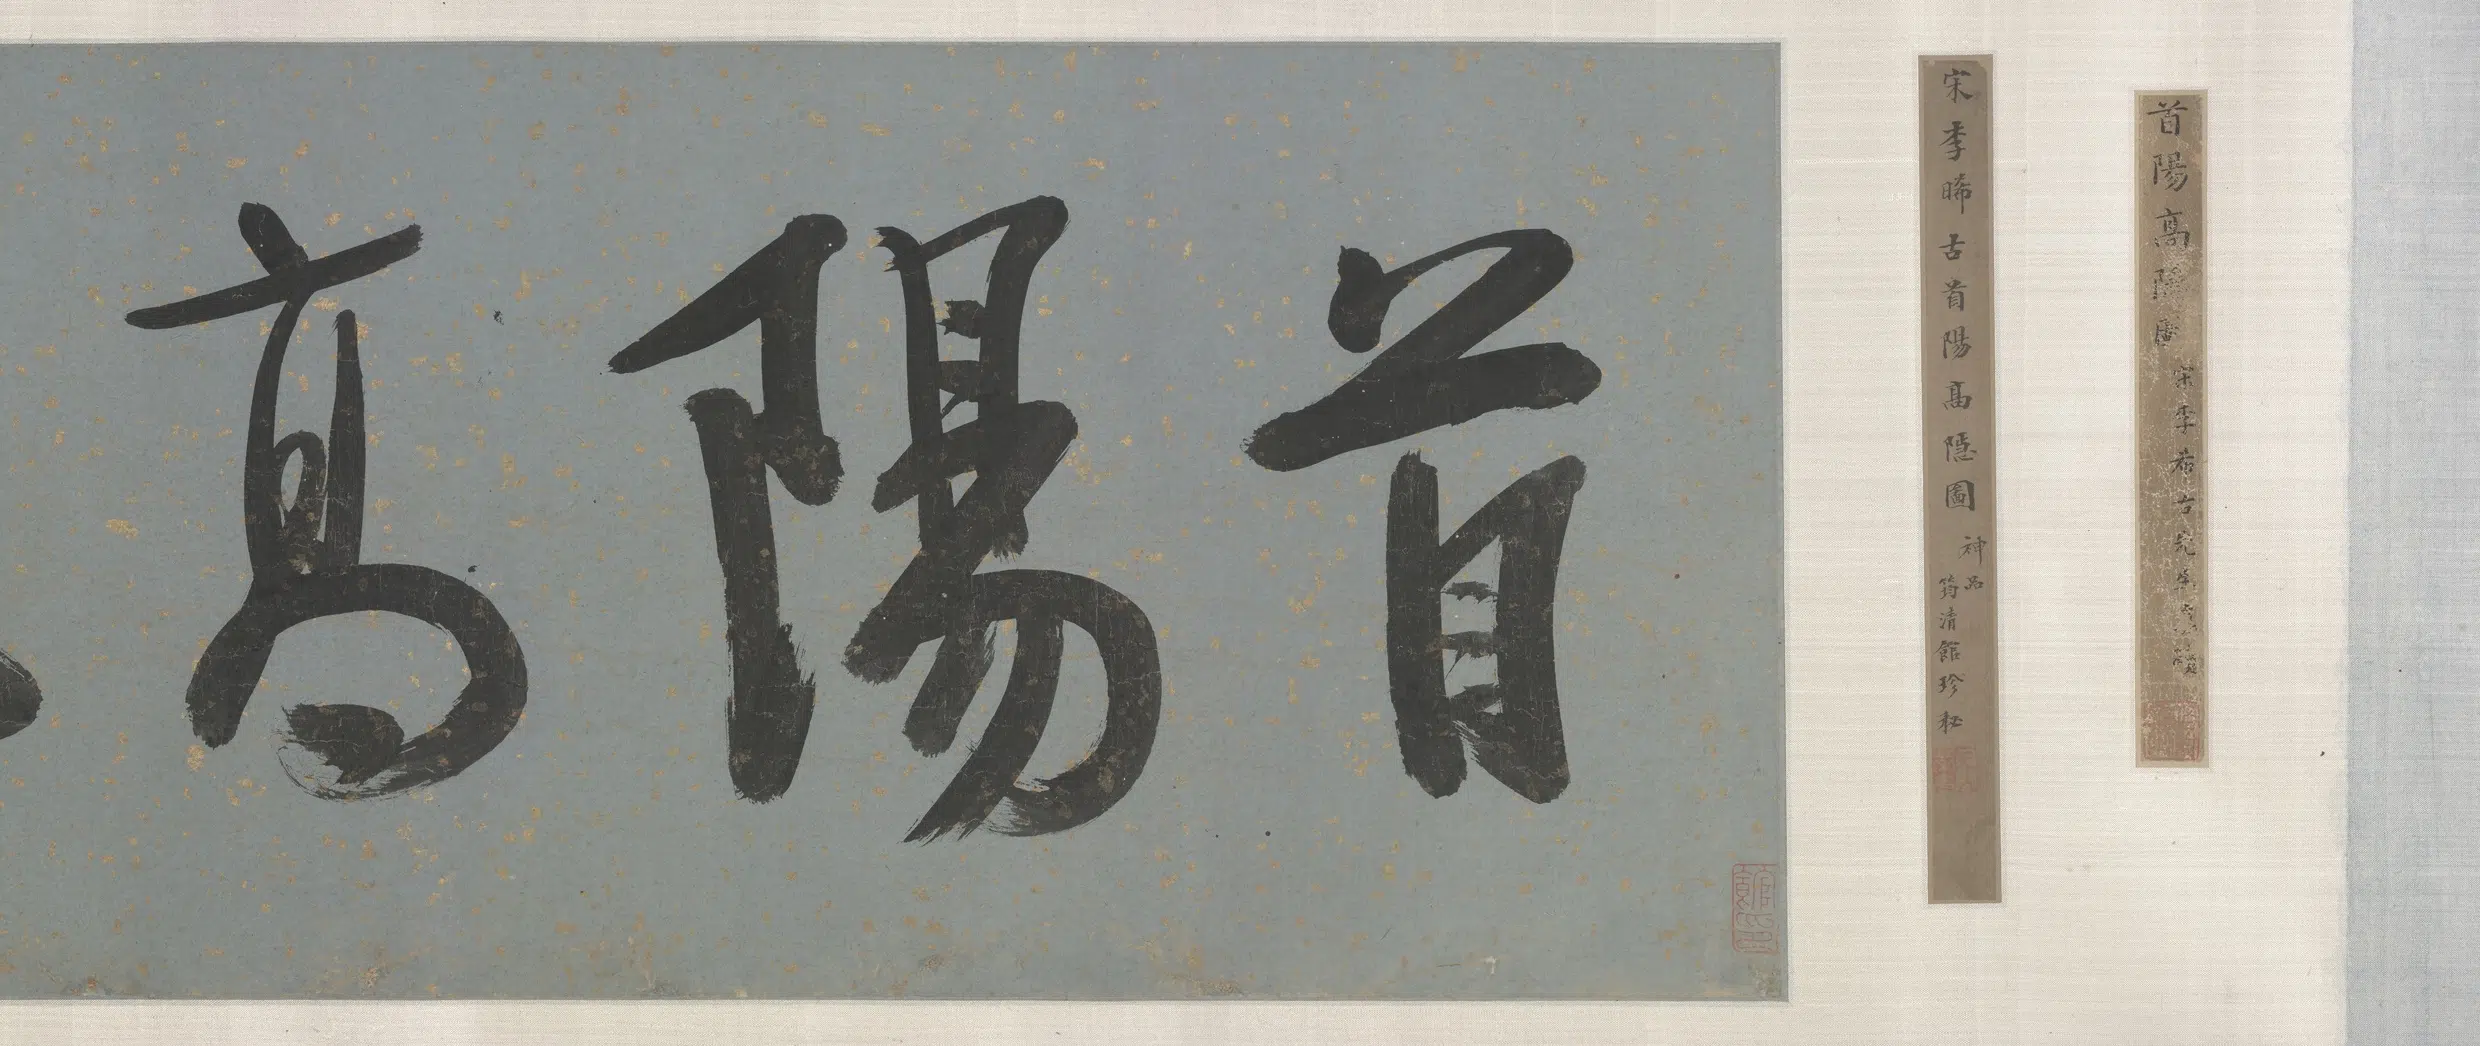 首陽高隱圖
宋李希古
宋李晞古首陽高隱圖
神品
筠清館珍秘
首陽高